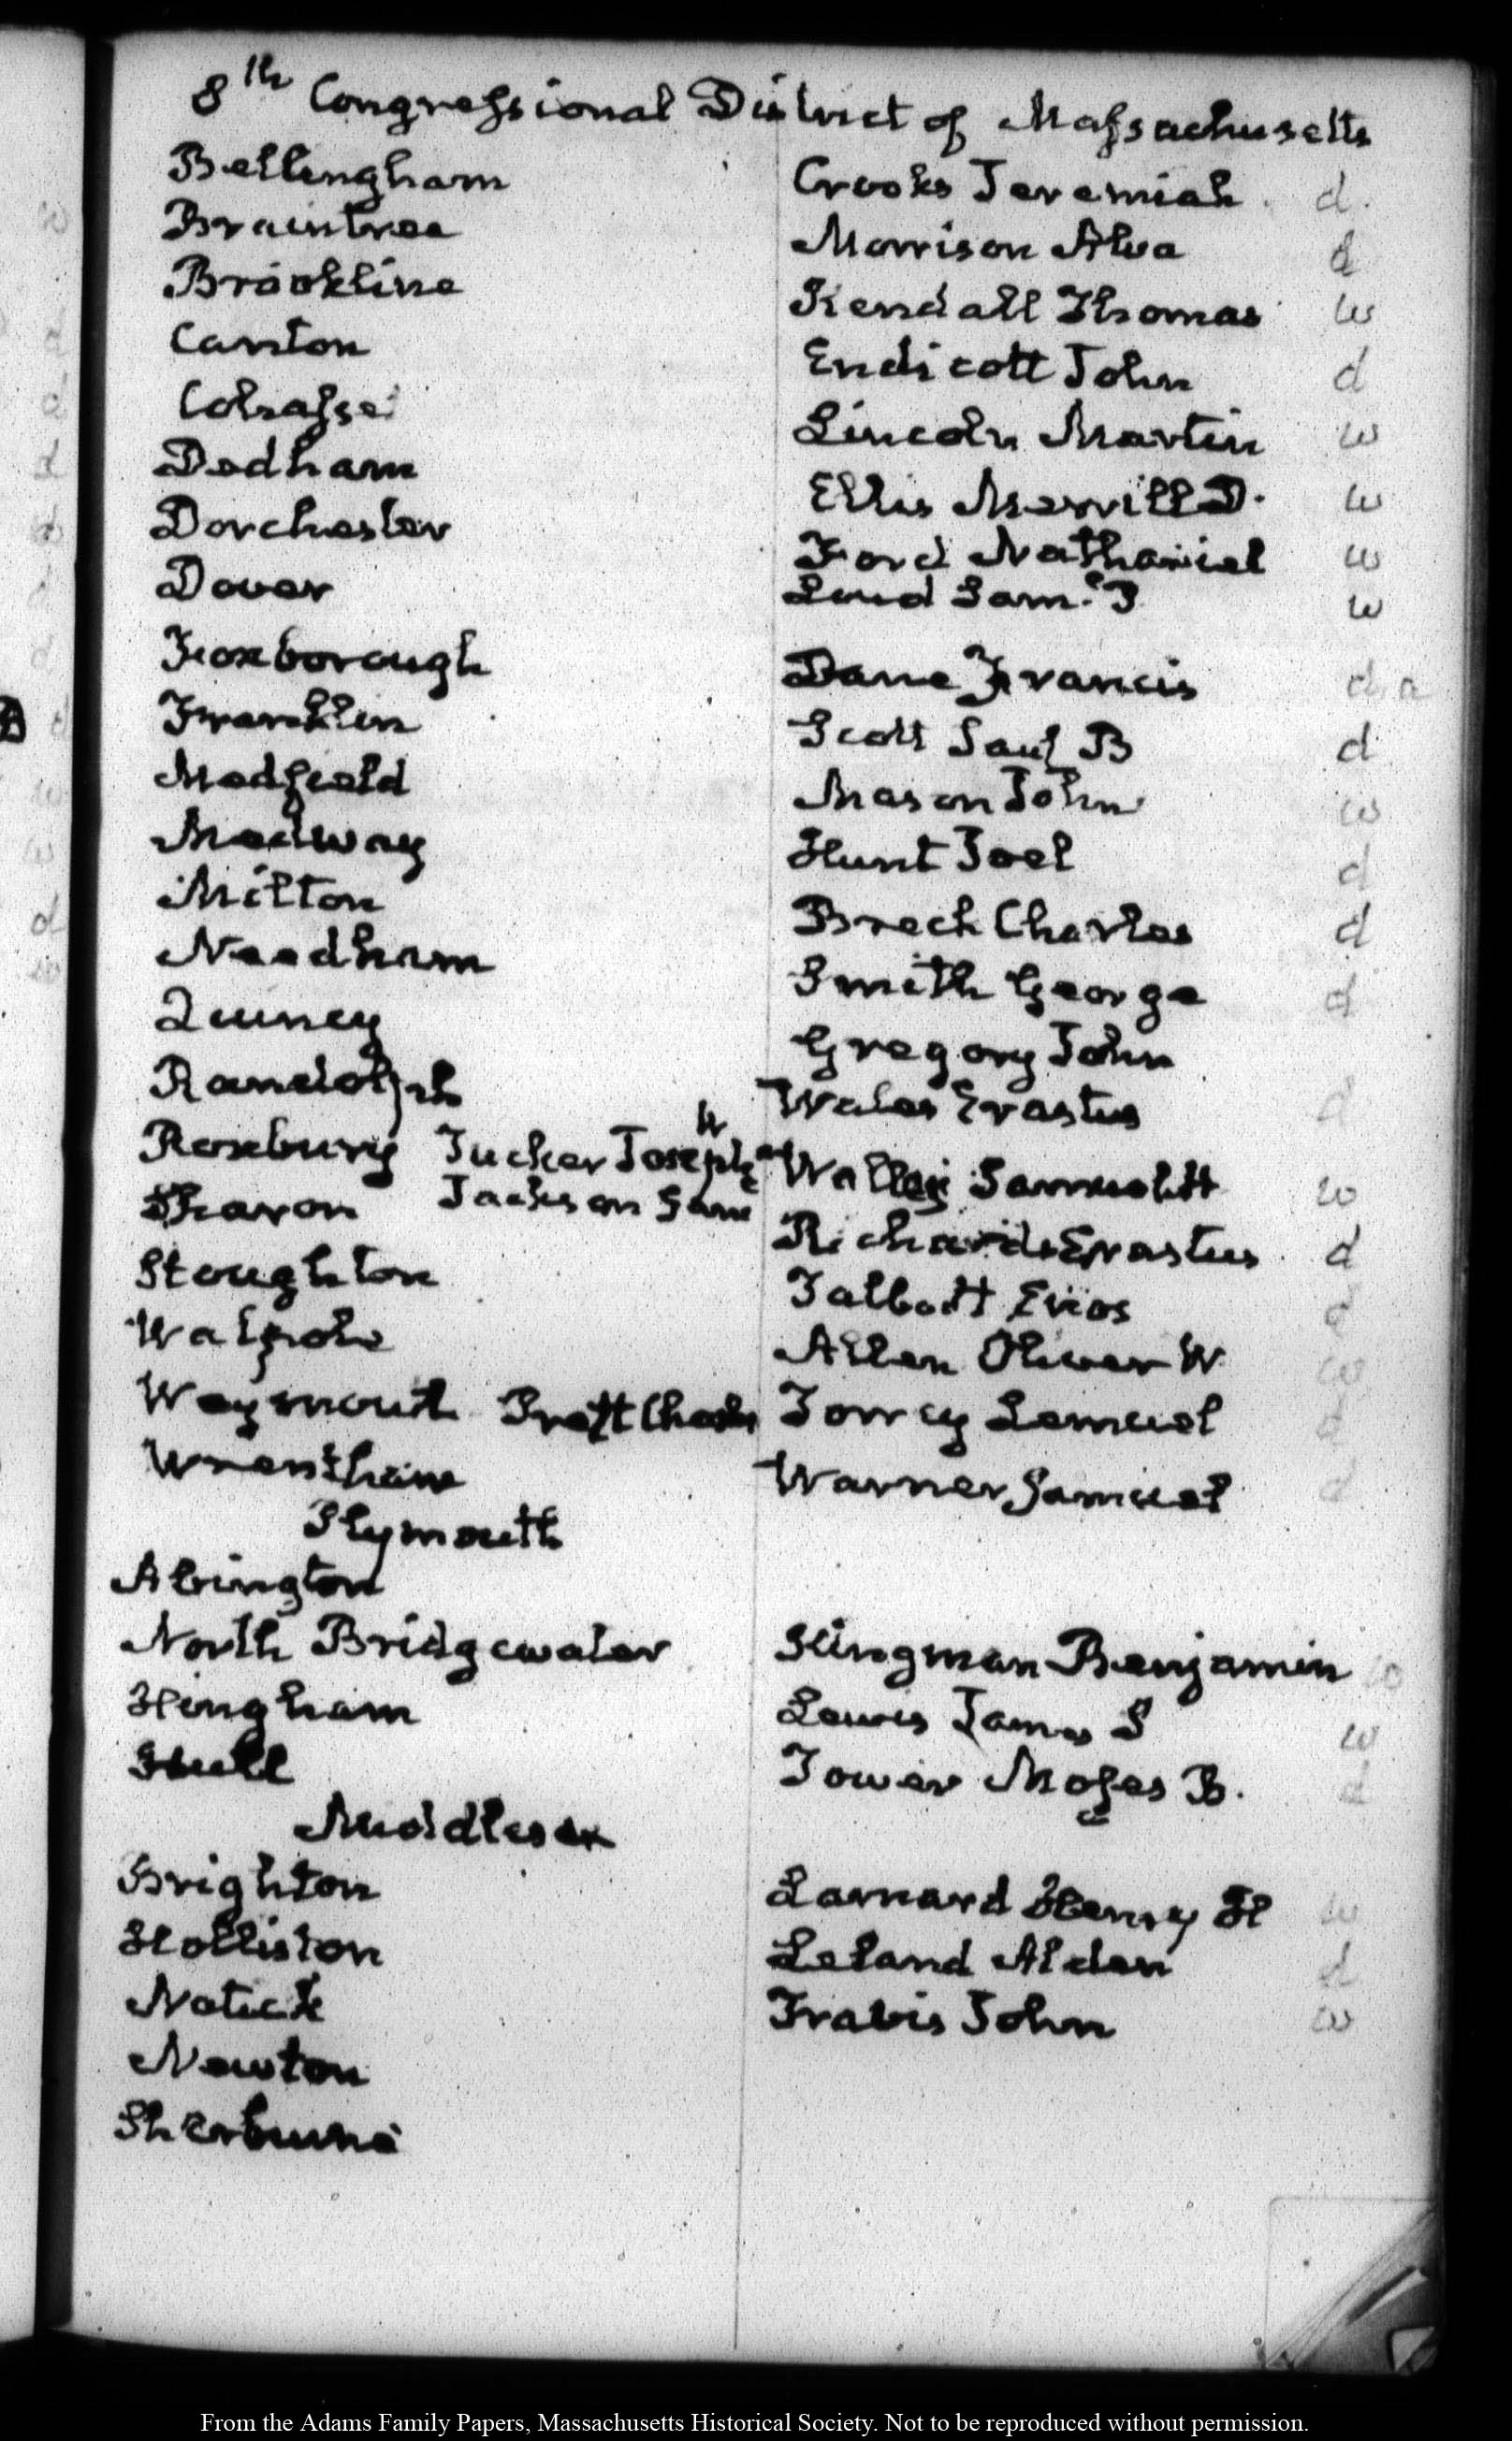 8th Congressional District of Massachusetts
Bellingham Crooks Jeremiah d.
Braintree Morrison Alva d
Brookline Kendall Thomas w
Canton Endicott John d
Cohasset Lincoln Martin w
Dedham Ellis Merrill D. w
Dorchester Ford Nathaniel w
Loud Sam. P w
Dover
Foxborough Dane Francis d
Franklin Scott Saul B d
Medfield Mason John w
Medway Hunt Joel d
Milton Breck Charles d
Needham Smith George d
Quincy Gregory John
Randolph Wales Erastus d
Roxbury Tucker Joseph W Walley Samuel H w
Jackson Sam
Sharon Richards Erastus d
Stoughton Talbott Enos d
Walpole Allen Oliver W w
Weymouth Pratt Torrey Lemuel d
Wrentham Warner Samuel d
Plymouth
Abington
North Bridgewater Kingman Benjamin w
Hingham Lewis James S w
Hull Tower Moses B. d
Middlesex
Brighton Larnard Henry H w
Holliston Leland Alden d
Natick Travis John w
Newton
Sherburne
From the Adams Family Papers, Massachusetts Historical Society. Not to be reproduced without permission.